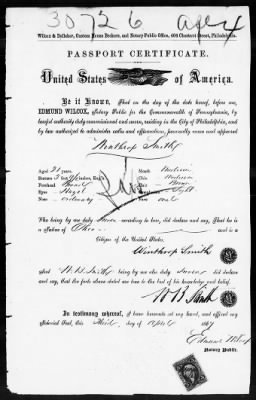 30726 apr 4
Wilcox & Delleker, Custom House Brokers, and Notary Public Office, 406 Chestnut Street, Philadelphia.
PASSPORT CERTIFICATE.
United States of America.
Be it Known, That on the day of the date hereof, before me,
EDMUND WILCOX, Notary Public for the Commonwealth of Pennsylvania, by
lawful authority duly commissioned and sworn, residing in the City of Philadelphia, and
by law authorized to administer oaths and affirmations, personally came and appeared
Winthrop Smith
Aged 21 years
Stature 5 feet inches, Eng.
Forehead Broad
Eyes Hazel
Nose ordinary
Mouth Medium
Chin Medium
Hair Brown
Complexion Light
Face oval
Who being by me duly Sworn according to law, did declare and say, That he is
a Native of Ohio and is a
Citizen of the United States.
Winthrop Smith
And W. B. Smith being by me duly Sworn did declare
and say, that the facts above stated are true to the best of his knowledge and belief.
W B Smith
In testimony whereof, I have hereunto set my hand, and affixed my
Notarial Seal, this Third day of April 1867
Edmund Wilcox
Notary Public.